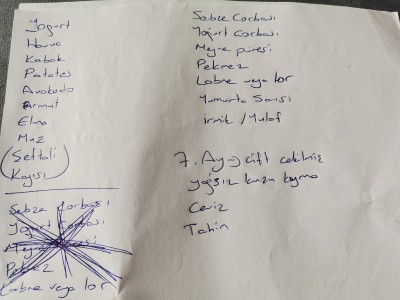 Yoğurt
Havuç
Kabak
Patates
Avokado
Armut
Elma
Muz
(Şeftali
Kayısı)
Sebze Çorbası
Yoğurt Çorbası
Meyve püresi
Pekmez
Labne veya lor
Sebze Çorbası
Yoğurt Çorbası
Meyve püresi
Pekmez
Labne veya lor
Yumurta Sarısı
İrmik / Yulaf
7. Ay → çift çekilmiş
yağsız kuzu kıyma
Ceviz
Tahin